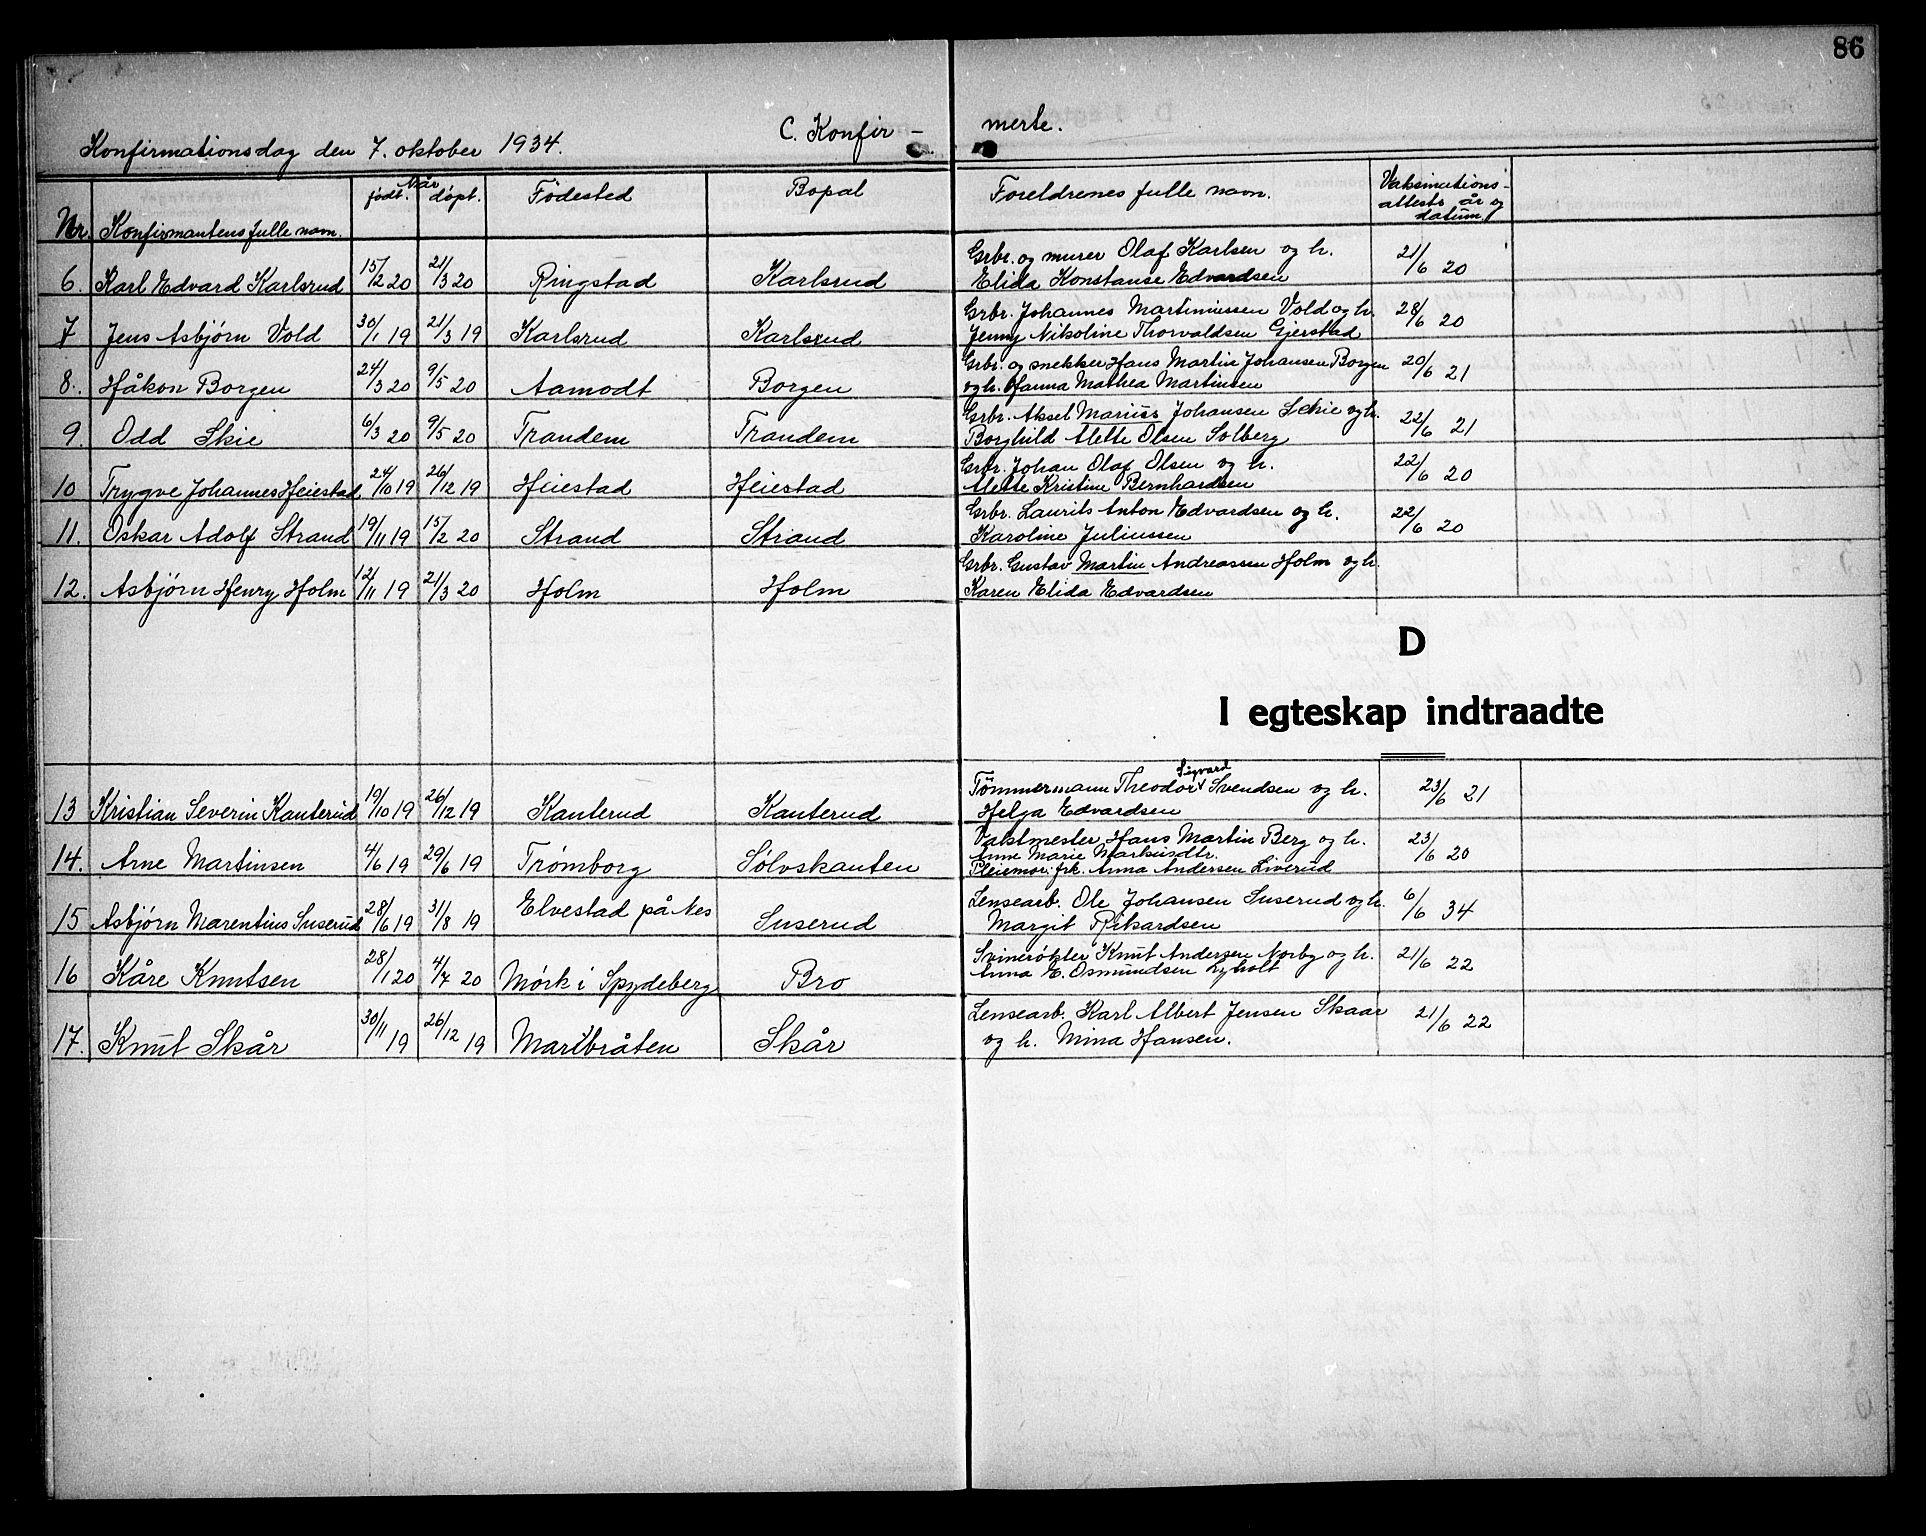 86
C. Konfir - merte.
Konfirmationsdag den 7. oktober 1934.
Nr. Konfirmantens fulle navn. Når født. døpt. Fødested Bopal Foreldrenes fulle navn. Vaksinations- attests år og datum.
6. Karl Edvard Karlsrud 15/2 20 21/3 20 Ringstad Karlsrud Grbr. og murer Olaf Karlsen og h. 21/6 20
Elida Konstanse Edvardsen
7 Jens Asbjørn Vold 30/1 19 21/3 19 Karlsrud Karlsrud Grbr. Johannes Martiniussen Vold og h. 28/6 20
Jenny Nikoline Thorvaldsen Gjerstad
8. Håkon Borgen 24/3 20 9/5 20 Aamodt Borgen Grbr. og snekker Hans Martin Johansen Borgen 20/6 21
og h. Hanna Mathea Martinsen
9. Odd Skie 6/3 20 9/5 20 Trandem Trandem Grbr. Aksel Marius Johansen Schie og h. 22/6 21
Borghild Alette Olsen Solberg
10 Trygve Johannes Heiestad 24/10 19 26/12 19 Heiestad Heiestad Grbr. Johan Olaf Olsen og h. 22/6 20
Alette Kristine Bernhardsen
11. Oskar Adolf Strand 19/11 19 15/2 20 Strand Strand Grbr. Laurits Anton Edvardsen og h. 22/6 20
Karoline Juliussen
12. Asbjørn Henry Holm 12/11 19 21/3 20 Holm Holm Grbr. Gustav Martin Andreassen Holm og h.
Karen Elida Edvardsen
D
I egteskap indtraadte
13 Kristian Severin Kanterud 19/10 19 26/12 19 Kanterud Kanterud Tömmermann Theodor Sigvard Svendsen og h. 23/6 21
Helga Edvardsen
14. Arne Martinsen 4/6 19 29/6 19 Trømborg Sölvskanten Vaktmester Hans Martin Berg og h. 23/6 20
Anne Marie Markusdtr.
Pleiemor: frk. Anna Andersen Liverud
15 Asbjörn Marentius Suserud 28/6 19 31/8 19 Elvestad på Nes Suserud Lensearb. Ole Johansen Suserud og h. 6/6 34
Margit Rikardsen
16 Kåre Knutsen 28/1 20 4/7 20 Mørk i Spydeberg Bro Svinerøkter Knut Andersen Norby og h. 21/6 22
Anna E. Osmundsen Lyholt
17. Knut Skår 30/11 19 26/12 19 Maribråten Skår Lensearb. Karl Albert Jensen Skaar 21/6 22
og h. Mina Hansen.